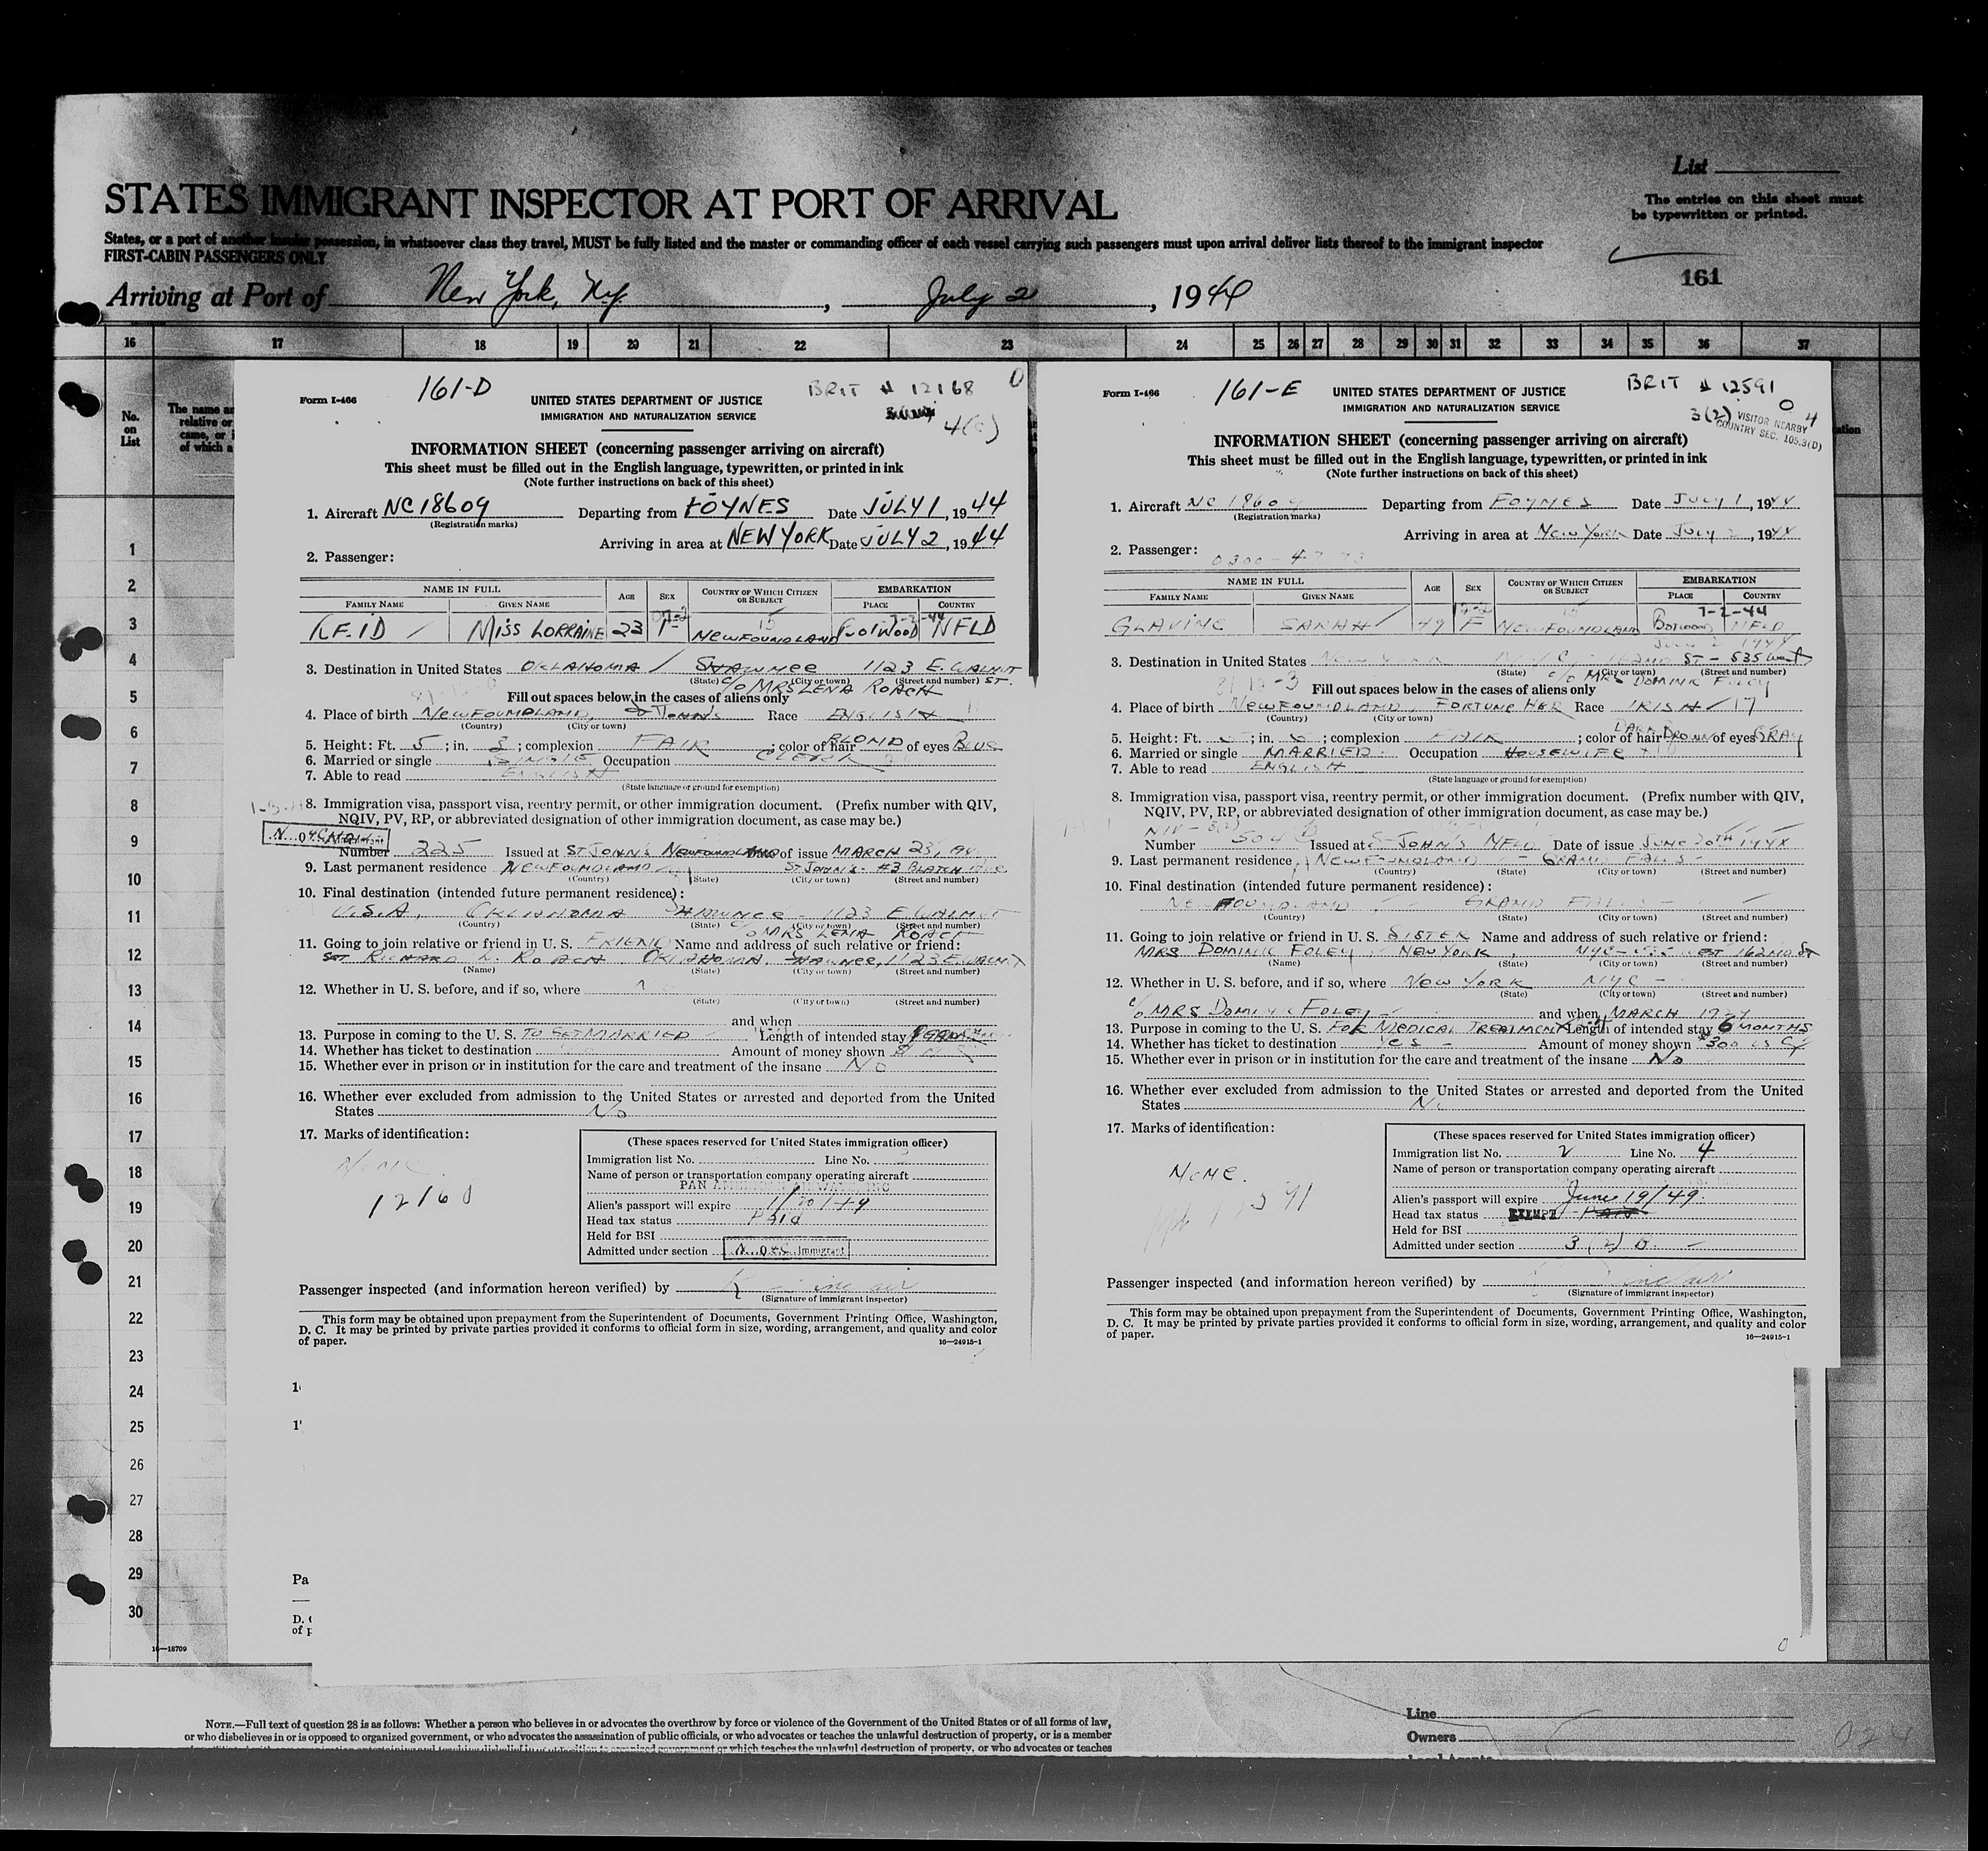 List
The entries on this sheet must
be typewritten or printed.
STATES IMMIGRANT INSPECTOR AT PORT OF ARRIVAL
States, or a port of another insular possession, in whatsoever class they travel, MUST be fully listed and the master or commanding officer of each vessel carrying such passengers must upon arrival deliver lists thereof to the immigrant inspector
FIRST-CABIN PASSENGERS ONLY
161
Arriving at Port of New York, N.Y. , July 2 , 1944
16 17 18 19 20 21 22 23 24 25 26 27 28 29 30 31 32 33 34 35 36 37
No.
on
List
The name an
relative or
came, or i
of which a
1
2
3
4
5
6
7
8
9
10
11
12
13
14
15
16
17
18
19
20
21
22
23
24
25
26
27
28
29
30
16—18709
Form I-466
161-D
BRIT # 12168
0
4(c)
UNITED STATES DEPARTMENT OF JUSTICE
IMMIGRATION AND NATURALIZATION SERVICE
INFORMATION SHEET (concerning passenger arriving on aircraft)
This sheet must be filled out in the English language, typewritten, or printed in ink
(Note further instructions on back of this sheet)
1. Aircraft NC18609 Departing from FOYNES Date JULY 1, 1944
(Registration marks)
Arriving in area at NEW YORK Date JULY 2, 1944
2. Passenger:
NAME IN FULL AGE SEX COUNTRY OF WHICH CITIZEN OR SUBJECT EMBARKATION
FAMILY NAME GIVEN NAME PLACE COUNTRY
7-2-44
REID MISS LORRAINE 23 F NEWFOUNDLAND BOTWOOD NFLD
3. Destination in United States OKLAHOMA SHAWNEE 1123 E. WALNUT ST.
(State) (City or town) (Street and number)
c/o MRS LENA ROACH
Fill out spaces below in the cases of aliens only
4. Place of birth NEWFOUNDLAND, ST JOHN'S Race ENGLISH
(Country) (City or town)
5. Height: Ft. 5 ; in. 3 ; complexion FAIR ; color of hair BLOND of eyes BLUE
6. Married or single SINGLE Occupation CLERK
7. Able to read ENGLISH
(State language or ground for exemption)
8. Immigration visa, passport visa, reentry permit, or other immigration document. (Prefix number with QIV,
NQIV, PV, RP, or abbreviated designation of other immigration document, as case may be.)
Number 225 Issued at ST JOHN'S NEWFOUNDLAND Date of issue MARCH 23,
9. Last permanent residence NEWFOUNDLAND ST JOHNS - #3
(Country) (State) (City or town) (Street and number)
10. Final destination (intended future permanent residence):
U.S.A, OKLAHOMA SHAWNEE - 1123 E. WALNUT
(Country) (State) (City or town) (Street and number)
c/o MRS LENA ROACH
11. Going to join relative or friend in U. S. FRIEND Name and address of such relative or friend:
SGT RICHARD L. ROACH OKLAHOMA. SHAWNEE, 1123 E. WALNUT
(Name) (State) (City or town) (Street and number)
12. Whether in U. S. before, and if so, where
(State) (City or town) (Street and number)
and when
13. Purpose in coming to the U. S. TO GET MARRIED Length of intended stay
14. Whether has ticket to destination Amount of money shown
15. Whether ever in prison or in institution for the care and treatment of the insane No
16. Whether ever excluded from admission to the United States or arrested and deported from the United
States No
17. Marks of identification:
NONE
12168
(These spaces reserved for United States immigration officer)
Immigration list No. Line No.
Name of person or transportation company operating aircraft
PAN AMERICAN AIRWAYS, INC
Alien's passport will expire
Head tax status Paid
Held for BSI
Admitted under section
Passenger inspected (and information hereon verified) by
(Signature of immigrant inspector)
This form may be obtained upon prepayment from the Superintendent of Documents, Government Printing Office, Washington,
D. C. It may be printed by private parties provided it conforms to official form in size, wording, arrangement, and quality and color
of paper.
16—24915-1
Form I-466
161-E
BRIT # 12591
0 4
3(2) VISITOR NEARBY
COUNTRY SEC. 105.3(D)
UNITED STATES DEPARTMENT OF JUSTICE
IMMIGRATION AND NATURALIZATION SERVICE
INFORMATION SHEET (concerning passenger arriving on aircraft)
This sheet must be filled out in the English language, typewritten, or printed in ink
(Note further instructions on back of this sheet)
1. Aircraft NC 18609 Departing from FOYNES Date JULY 1, 1944
(Registration marks)
Arriving in area at NEW YORK Date JULY 2, 1944
2. Passenger:
NAME IN FULL AGE SEX COUNTRY OF WHICH CITIZEN OR SUBJECT EMBARKATION
FAMILY NAME GIVEN NAME PLACE COUNTRY
7-2-44
GLAVINE SARAH 49 F NEWFOUNDLAND BOTWOOD NFLD
3. Destination in United States NEW YORK NYC - 162ND ST - 535 West
(State) (City or town) (Street and number)
c/o MRS DOMINIK FOLEY
Fill out spaces below in the cases of aliens only
4. Place of birth NEWFOUNDLAND, FORTUNE HBR Race IRISH
(Country) (City or town)
5. Height: Ft. 5 ; in. ; complexion FAIR ; color of hair DARK BROWN of eyes GRAY
6. Married or single MARRIED Occupation HOUSEWIFE
7. Able to read ENGLISH
(State language or ground for exemption)
8. Immigration visa, passport visa, reentry permit, or other immigration document. (Prefix number with QIV,
NQIV, PV, RP, or abbreviated designation of other immigration document, as case may be.)
Number 504 Issued at ST JOHN'S NFLD Date of issue JUNE 20TH 1944
9. Last permanent residence NEWFOUNDLAND - GRAND FALLS -
(Country) (State) (City or town) (Street and number)
10. Final destination (intended future permanent residence):
NEWFOUNDLAND, GRAND FALLS -
(Country) (State) (City or town) (Street and number)
11. Going to join relative or friend in U. S. SISTER Name and address of such relative or friend:
MRS DOMINIK FOLEY, NEW YORK, NYC - 535 WEST 162ND ST
(Name) (State) (City or town) (Street and number)
12. Whether in U. S. before, and if so, where NEW YORK NYC -
(State) (City or town) (Street and number)
c/o MRS DOMINIC FOLEY and when MARCH
13. Purpose in coming to the U. S. FOR MEDICAL TREATMENT Length of intended stay 6 MONTHS
14. Whether has ticket to destination YES - Amount of money shown $300
15. Whether ever in prison or in institution for the care and treatment of the insane No
16. Whether ever excluded from admission to the United States or arrested and deported from the United
States No
17. Marks of identification:
NONE.
(These spaces reserved for United States immigration officer)
Immigration list No. 2 Line No. 4
Name of person or transportation company operating aircraft
Alien's passport will expire June 19/49.
Head tax status EXEMPT
Held for BSI
Admitted under section 3 (2)
Passenger inspected (and information hereon verified) by
(Signature of immigrant inspector)
This form may be obtained upon prepayment from the Superintendent of Documents, Government Printing Office, Washington,
D. C. It may be printed by private parties provided it conforms to official form in size, wording, arrangement, and quality and color
of paper.
16—24915-1
Pa
D. C
of p
NOTE.—Full text of question 28 is as follows: Whether a person who believes in or advocates the overthrow by force or violence of the Government of the United States or of all forms of law,
or who disbelieves in or is opposed to organized government, or who advocates the assassination of public officials, or who advocates or teaches the unlawful destruction of property, or is a member
Line
Owners
Local Agents